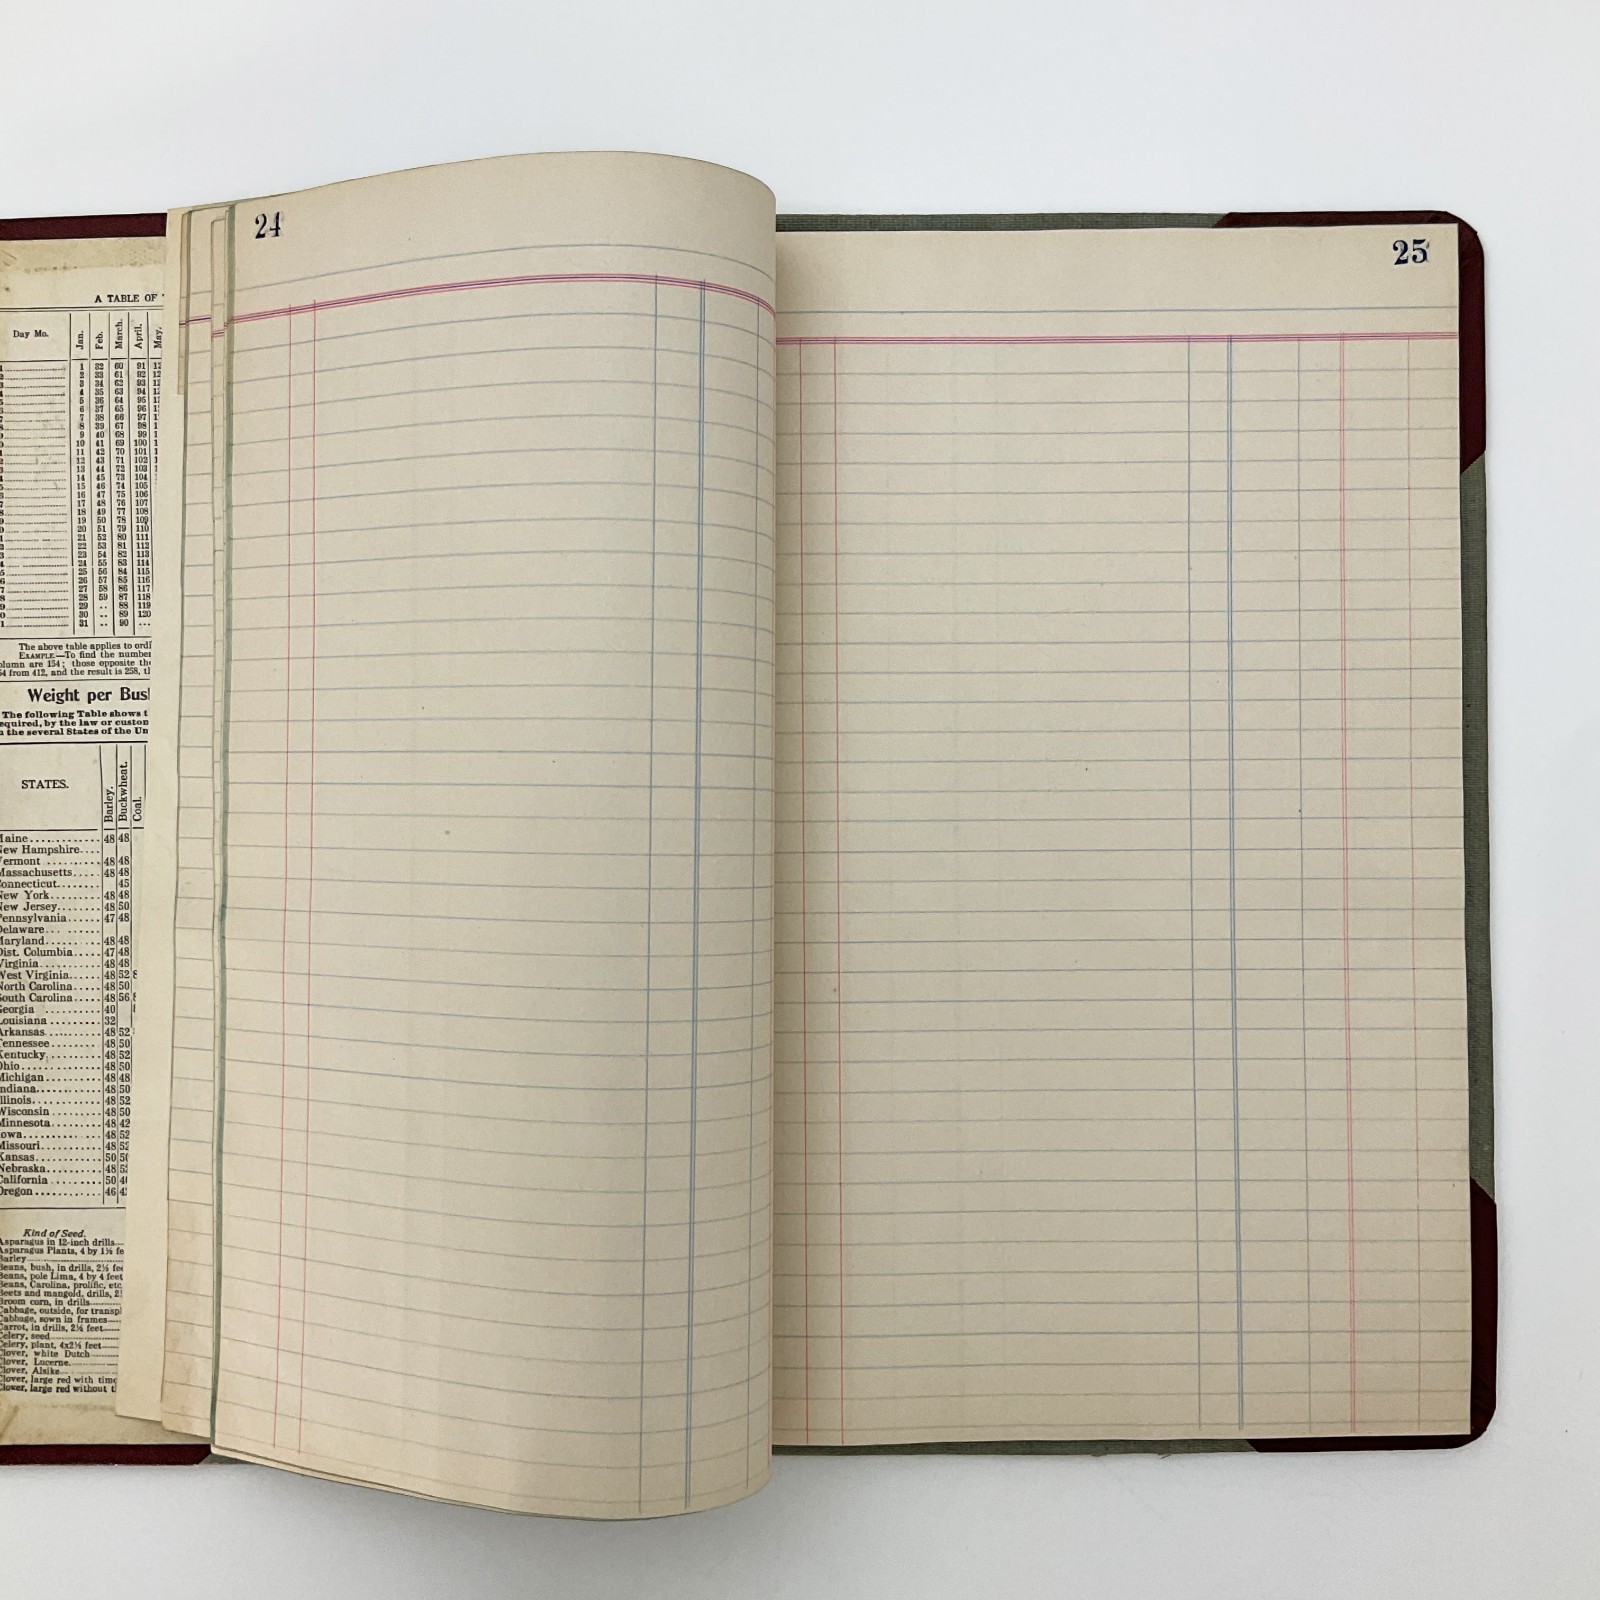 24
25
A TABLE OF
Day Mo. Jan. Feb. March. April. May.
1 32 60 91
2 33 61 92
3 34 62 93
4 35 63 94
5 36 64 95
6 37 65 96
7 38 66 97
8 39 67 98
9 40 68 99
10 41 69 100
11 42 70 101
12 43 71 102
13 44 72 103
14 45 73 104
15 46 74 105
16 47 75 106
17 48 76 107
18 49 77 108
19 50 78 109
20 51 79 110
21 52 80 111
22 53 81 112
23 54 82 113
24 55 83 114
25 56 84 115
26 57 85 116
27 58 86 117
28 59 87 118
29 .. 88 119
30 .. 89 120
31 .. 90 ...
The above table applies to
EXAMPLE—To find the number
column are 154; those opposite
from 412, and the result is 258,
Weight per
The following Table shows
required, by the law or custom
the several States of the
STATES. Barley. Buckwheat. Coal.
Maine 48 48
New Hampshire
Vermont 48 48
Massachusetts 48 48
Connecticut 45
New York 48 48
New Jersey 48 50
Pennsylvania 47 48
Delaware
Maryland 48 48
Dist. Columbia 47 48
Virginia 48 48
West Virginia 48 52
North Carolina 48 50
South Carolina 48 56
Georgia 40
Louisiana 32
Arkansas 48 52
Tennessee 48 50
Kentucky 48 52
Ohio 48 50
Michigan 48 48
Indiana 48 50
Illinois 48 52
Wisconsin 48 50
Minnesota 48 42
Iowa 48 52
Missouri 48 52
Kansas 50
Nebraska 48
California 50
Oregon 46
Kind of Seed.
Asparagus in 12-inch drills
Asparagus Plants, 4 by 1½
Barley
Beans, bush, in drills, 2½
Beans, pole Lima, 4 by 4 feet
Beans, Carolina, prolific, etc
Beets and mangold, drills,
Broom corn, in drills
Cabbage, outside, for
Cabbage, sown in frames
Carrot, in drills, 2½ feet
Celery, seed
Celery, plant, 4x2½ feet
Clover, white Dutch
Clover, Lucerne
Clover, Alsike
Clover, large red with
Clover, large red without